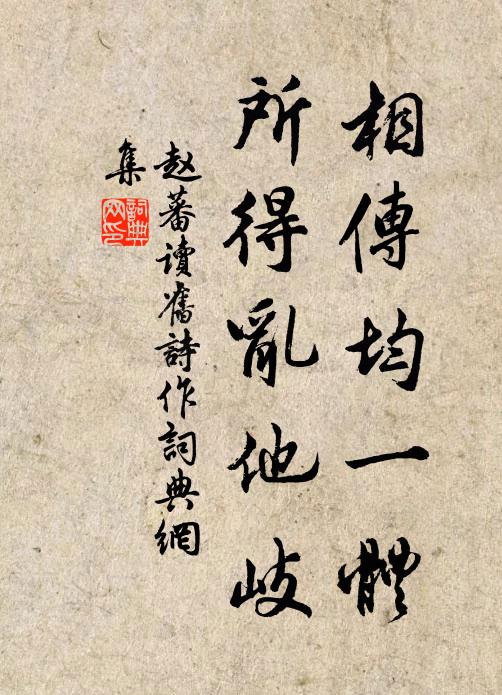 相傳均一體
所得亂他岐
赵蕃讀舊詩作詞典網
集
詞典
网印